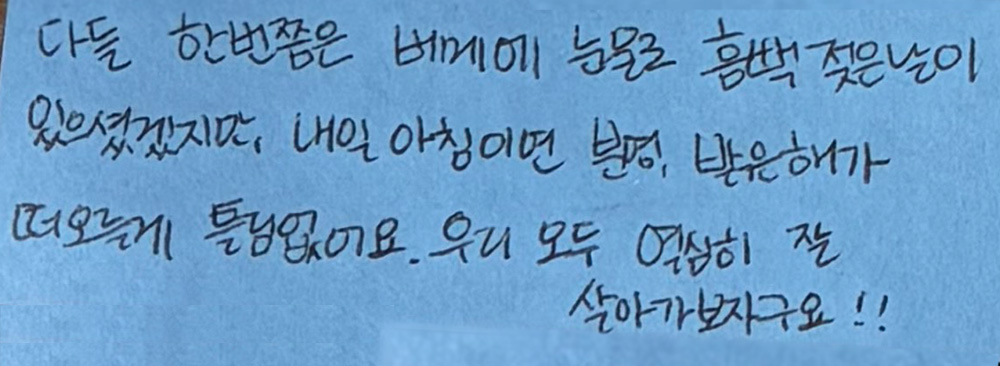 다들 한번쯤은 베게에 눈물로 흠뻑 젖은날이
있으셨겠지만, 내일 아침이면 분명, 밝은해가
떠오를게 틀님없어요. 우리 모두 열심히 잘
살아가보자구요!!